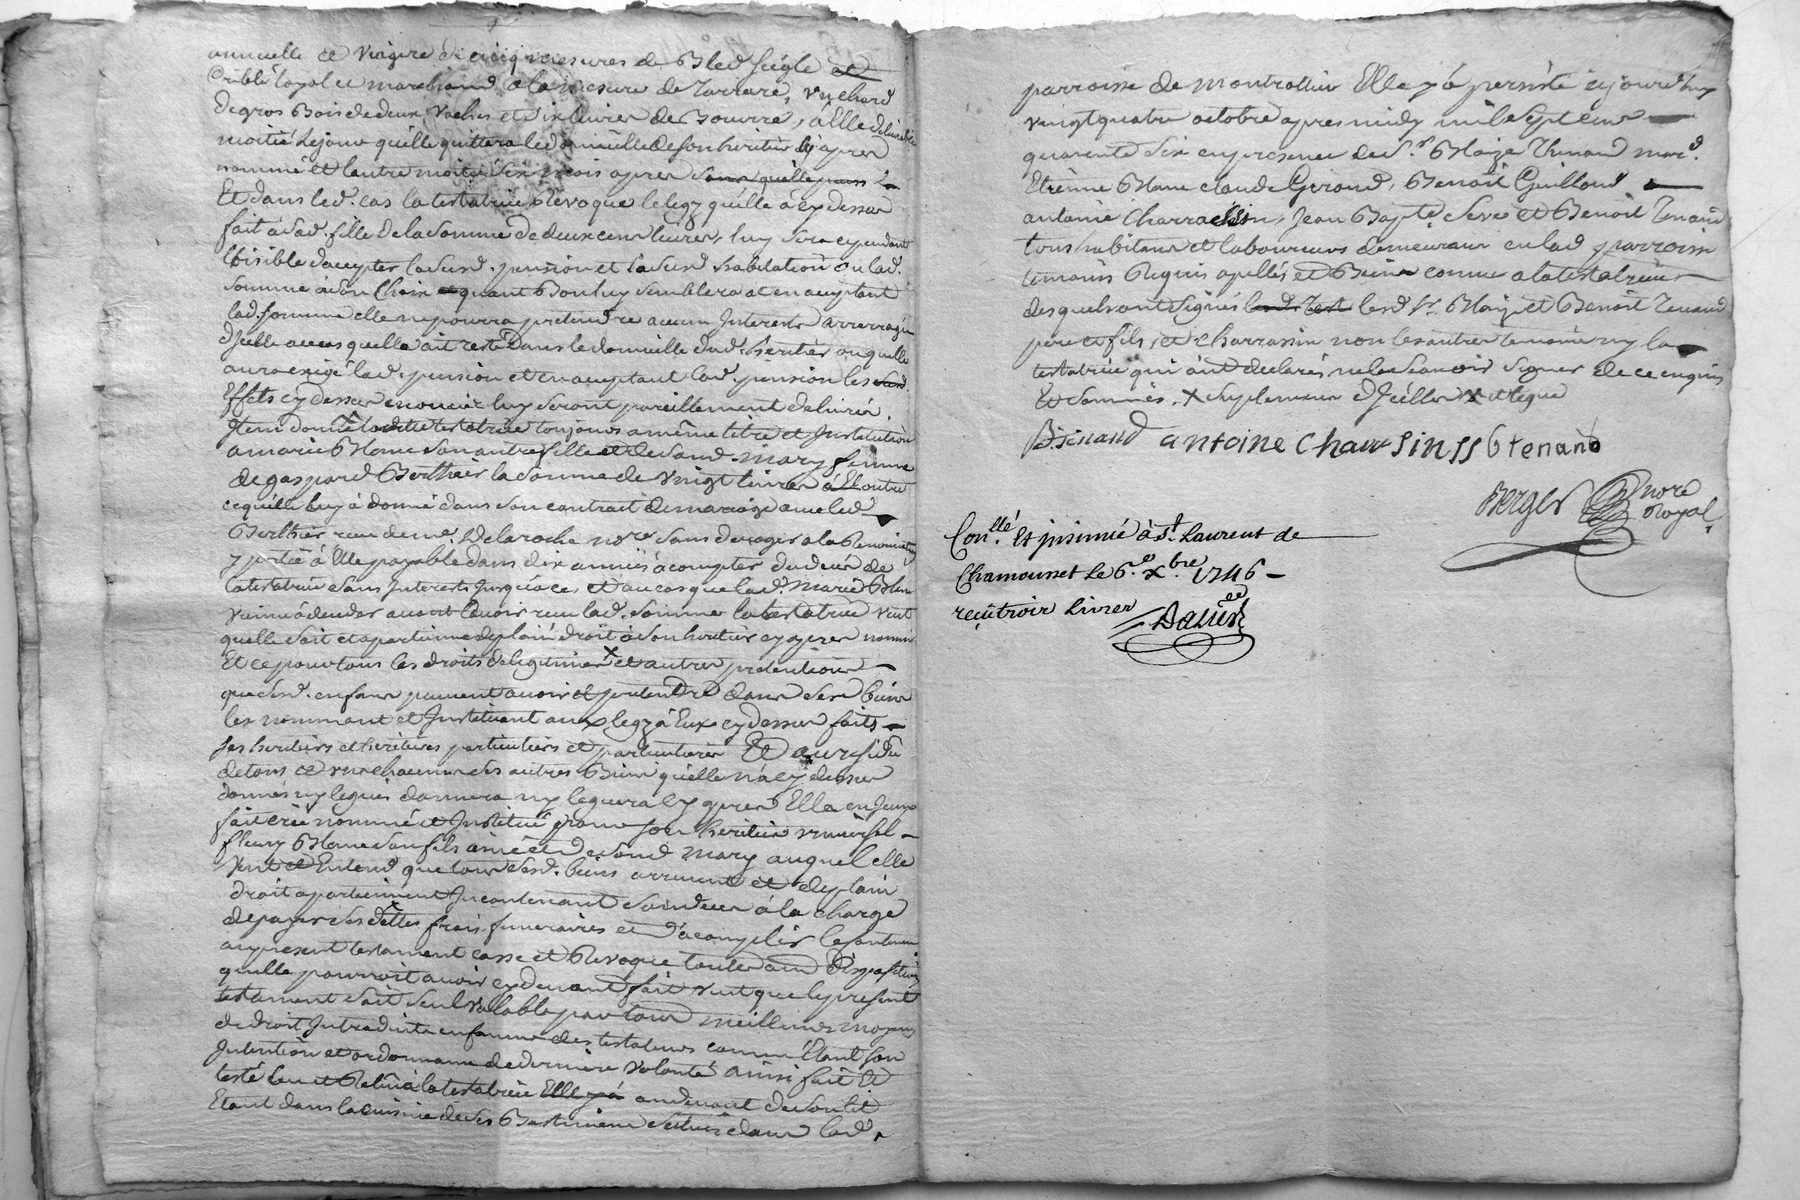 annuelle et viagere de cinq mesures de Bled seigle et
Criblé loyal et marchand a la mesure de Tarrare, un chard
de gros Bois de deux vaches et six livres de Beurre, a Elle delivrable
moitié le jour qu'elle quittera le domicille de son heritier cy apres
nommé et l'autre moitié six mois apres
Et dans led. cas la testatrice Revoque le legz qu'elle a cy dessus
fait à sad. fille de la somme de deux cens livres, luy sera cependant
loisible d'accepter la susd. pension et la susd. habitation ou lad.
somme a son Choix quant Bon luy semblera et en acceptant
lad. somme elle ne pourra pretendre aucun Interests arrerages
d'Icelle au cas quelle ait resté dans le domicille dud. heritier ou quelle
aura exigé lad. pension et en acceptant lad. pension les susd.
Effets cy dessus enoncés luy seront pareillement delivrés.
Item donne ladite testatrice toujours a même titre et Institution
a marie Blanc son autre fille et de sond. mary femme
de gaspard Berthier la somme de vingt livres et outre
ce qu'elle luy à donné dans son contrat de mariage avec led.
Berthier receu de me. Delaroche nore. sans deroger a la Renonciation
y portée à Elle payable dans dix années à compter du decés de
la testatrice sans Interests jusques a ces et au cas que lad. marie Blanc
vienne à deceder avant davoir receu lad. somme la testatrice veut
quelle soit et apartienne de plain droit à son heritier cy apres nommé
Et ce pour tous les droits de legitimes x et autres pretentions
que sesd. enfans peuvent avoir et pretendre dans ses biens
les nomment et Instituant aux legz à Eux cy dessus faits
ses heritiers et heritieres particuliers et particulieres Et au residu
de tous et un chacuns ses autres Biens qu'elle n'a cy dessus
donnés ny legués donnera ny leguera cy apres Elle en Jceux
fait crée nommé et Institué pour son heritier universel
fleury Blanc son fils ainé et de sond. mary auquel elle
veut et Entend que tous sesd. biens arrivent et de plain
droit apartiennent Incontenant son decés à la charge
de payer ses dettes frais funeraires et d'acomplir le contenu
au present testament casse et Revoque toutes aud. Dispositions
quelle pourroit avoir cy devant fait veut que le present
testament soit seul valable par tous meilleurs moyens
de droit Introduits en faveur des testateurs comme Etant son
Intention et ordonnance de derniere volonté ainsi fait et
testé leu et Releu à la testatrice Elle y à au devant de son lit
Etant dans la cuisine de ses Bastiments situés dans lad.
parroisse de montrottier Elle y a persisté cejourd'huy
vingt quatre octobre apres midy mil sept cens
quarente six en presence de Sr. Blaize Tenand mard.
Etienne Blanc claude Giroud, Benoist Guilloud
antoine Charrassin, Jean Bapte. Seve et Benoit Tenand
tous habitans et laboureurs demeurans en lad. parroisse
temoins Requis apellés et Bien connus a la testatrice
desquels ont signés lesd. Sr. Blaize et Benoit Tenand
pere et fils, et charrassin non les autres temoins ny la
testatrice qui ont declarés ne le sçavoir signer de ce enquis
Et sommés. x suplement d'Icelles x et legue
B tenand antoine charrasinss b tenand
Berger nore
Royal
Conllé. Et jnsinué à St Laurent de
Chamousset le 6e. xbre. 1746
reçu trois livres